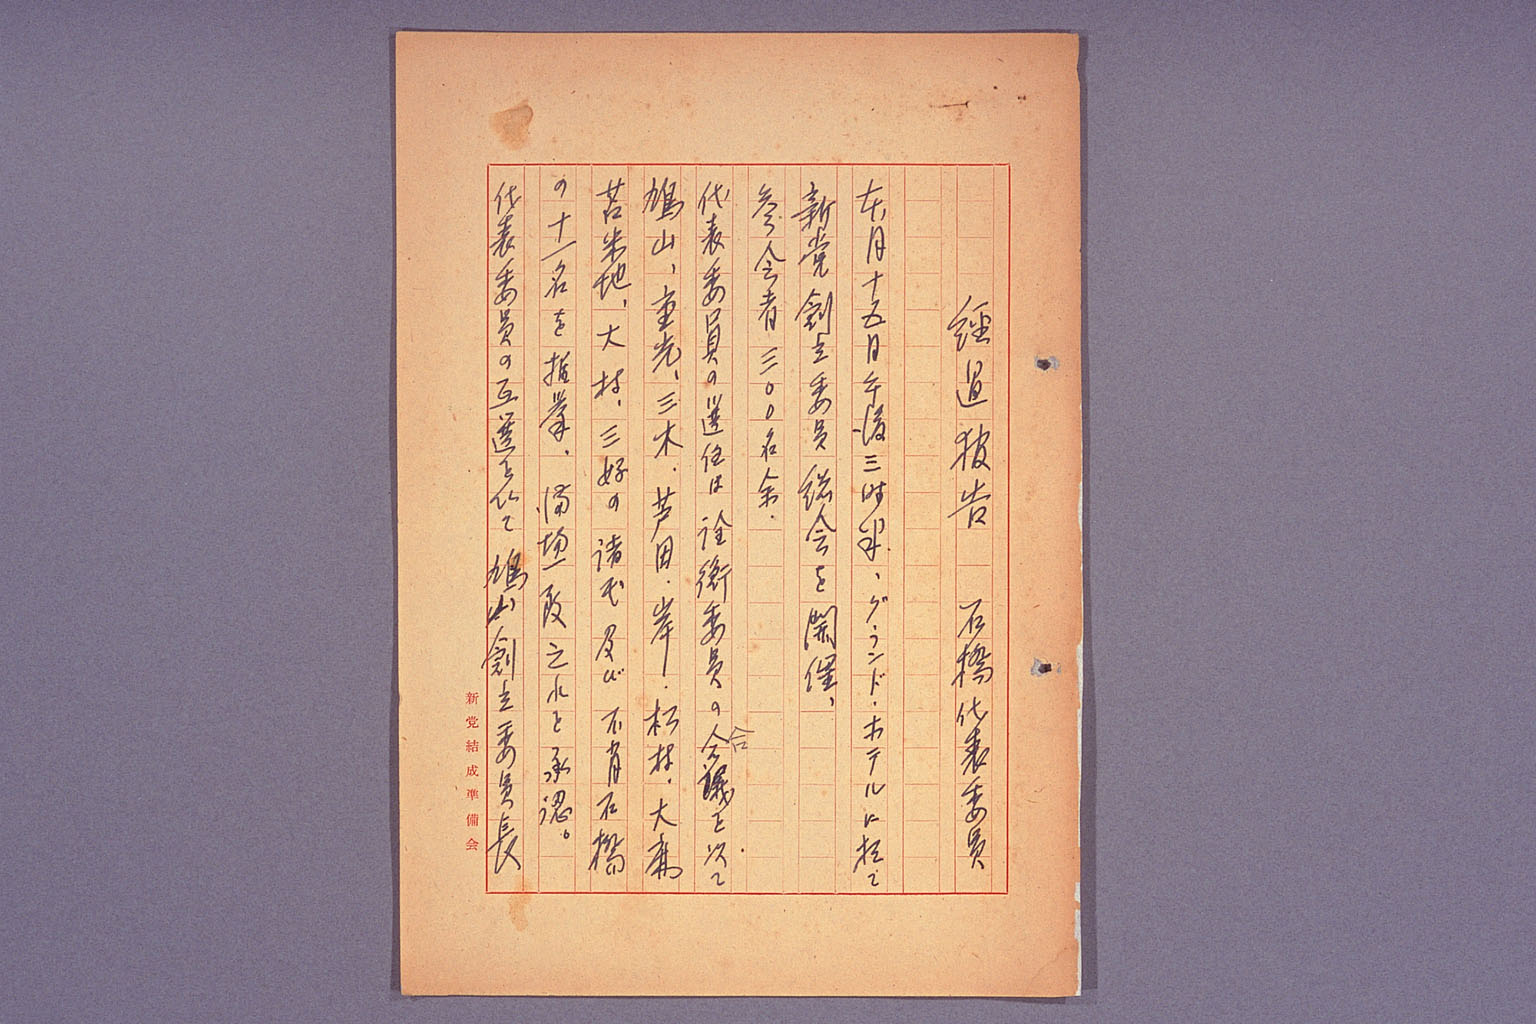 経過報告　石橋代表委員
本月十五日午後三時半、グランド・ホテルに於て
新党創立委員総会を開催、
参会者三〇〇名余.
代表委員の選任は詮衡委員の会議を以て
合
鳩山、重光、三木、芦田、岸、松村、大麻
苫米地、大村、三好の諸氏及び不肖石橋
の十一名を推挙、満場一致之れを承認。
代表委員の互選を以て鳩山創立委員長
新党結成準備会